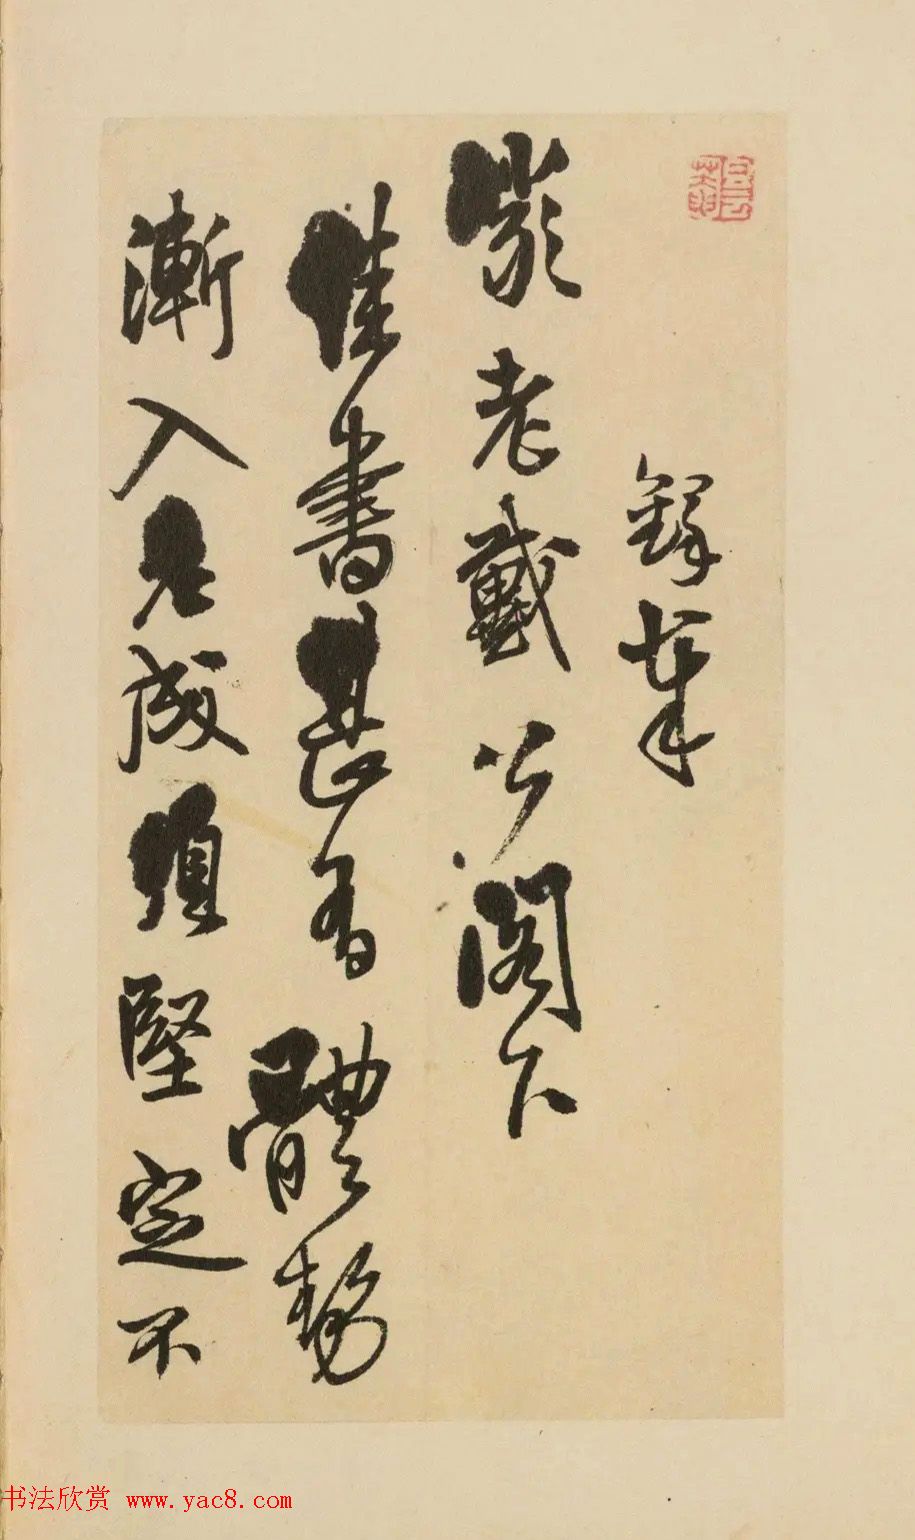 鐸奉
巖老戴公閣下
佳書甚有體勢
漸入老成須堅定不
书法欣赏 www.yac8.com